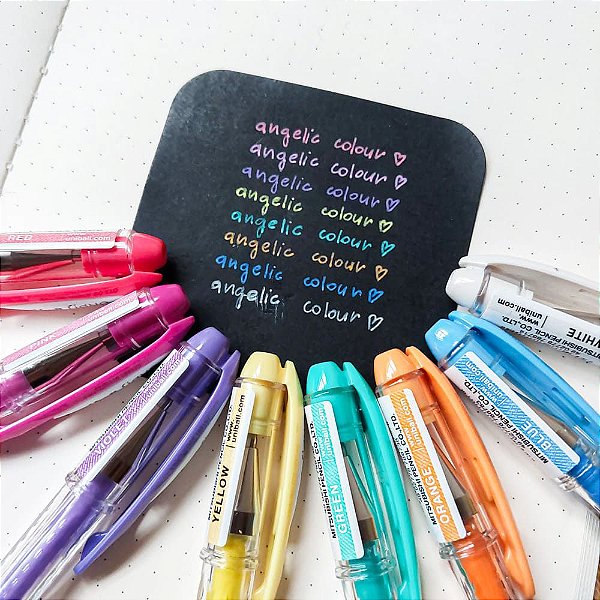 angelic colour ♡
angelic colour ♡
angelic colour ♡
angelic colour ♡
angelic colour ♡
angelic colour ♡
angelic colour ♡
angelic colour ♡
RED
uniball.com
uniball.com
VIOLET
YELLOW
uniball.com
GREEN
MITSUBISHI PENCIL CO.,LTD.
ORANGE
uniball.com
MITSUBISHI PENCIL CO.,LTD.
BLUE
uniball.com
MITSUBISHI PENCIL CO.,LTD.
WHITE
www.uniball.com
MITSUBISHI PENCIL CO.,LTD.